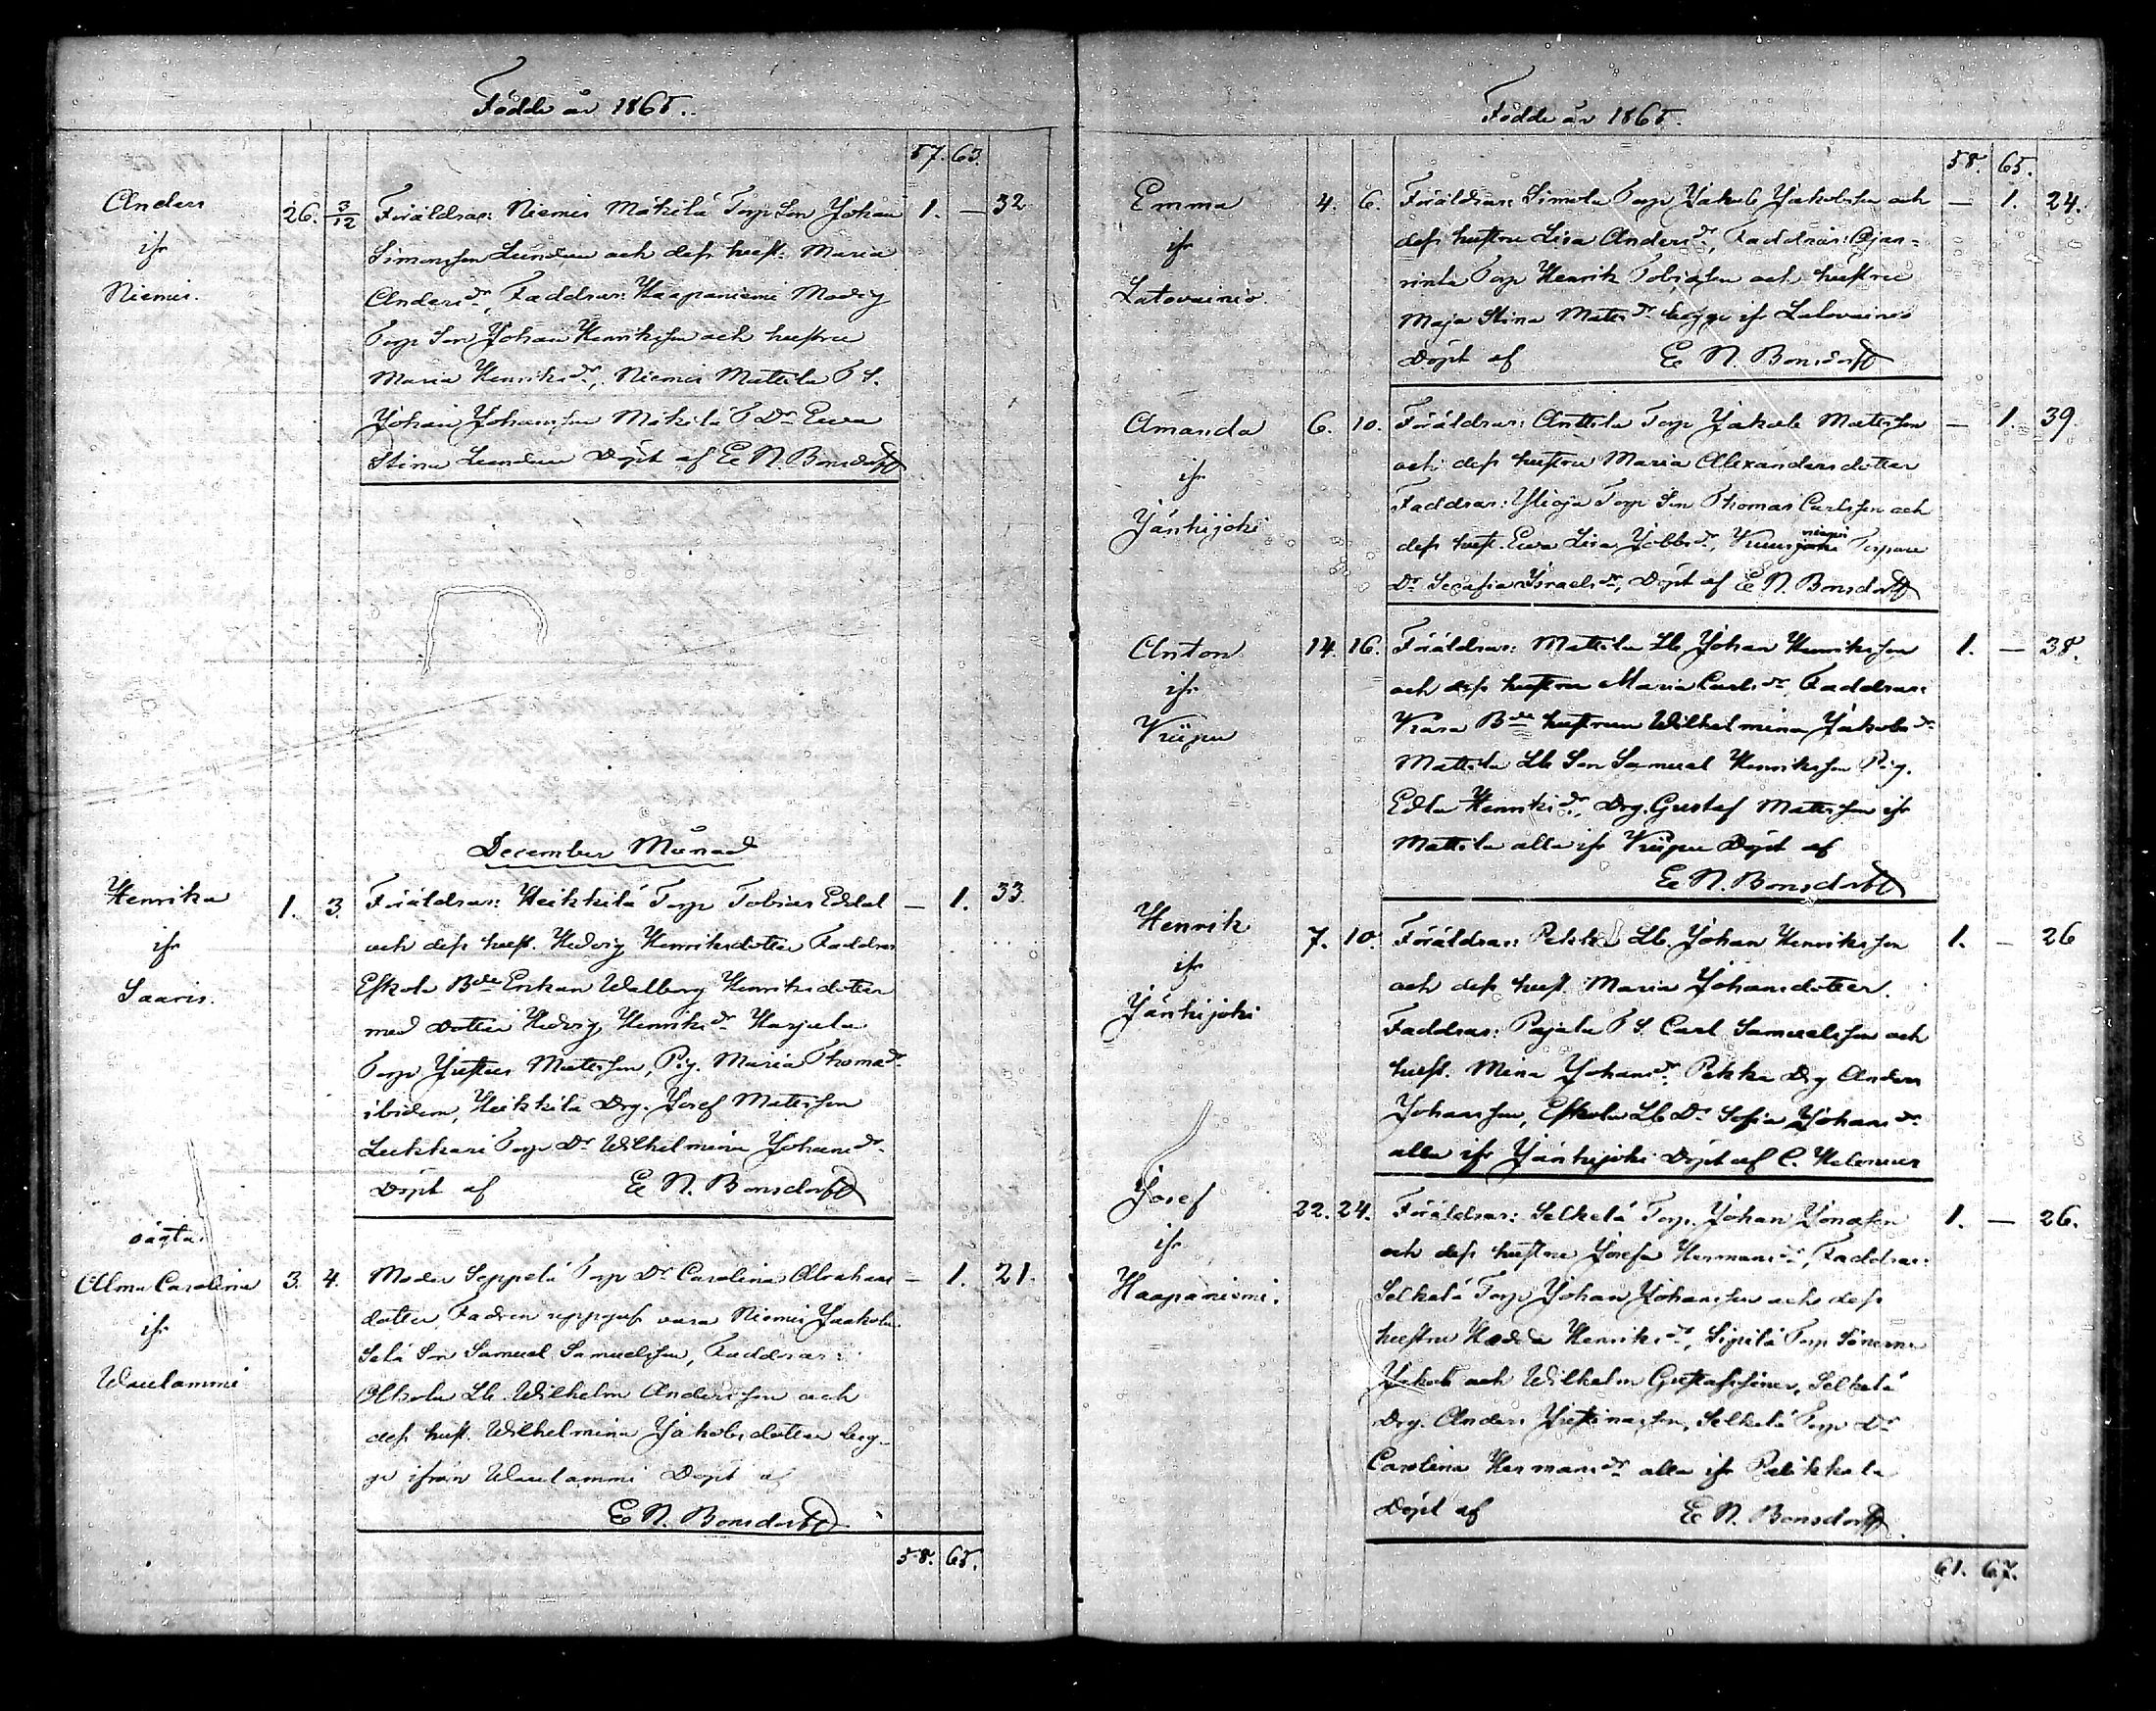 Födde år 1865.
57. 63.
Anders
ifr
Niemis.
26. 3/12
Föräldrar: Niemis Mäkilä Torp Son Johan
Simonsson Lundeen och dess hust. Maria
Andersdr, Faddrar: Haapaniemi Mod
Torp Son Johan Henriksson och hustru
Maria Henriksdr, Niemis Mattila T S.
Johan Johansson Mäkilä T Dr Eva
Stina Lundeen Döpt af E N. Bonsdorff
1. — 32
December Månad
Henrika
ifr
Saaris.
1. 3.
Föräldrar: Heikkilä Torp Tobias Eklöf
och dess hust. Hedvig Henriksdotter Faddrar
Eskola Bde Enkan Walborg Henriksdotter
med dotter Hedvig Henriksdr Harjula
Torp Justus Matsson, Pig. Maria Thomadr
ibidem, Heikkilä Drg. Josef Matsson
Lukkari Torp Dr Wilhelmina Johansdr
Döpt af E N. Bonsdorff
— 1. 33.
oägta
Alma Carolina
ifr
Waulammi
3. 4.
Moder Seppelä Torp Dr Carolina Abrahams
dotter, Fadren uppgifs vara Niemis Jaakola
Son Samuel Samuelsson, Faddrar:
Lb. Wilhelm Andersson och
dess hust. Wilhelmina Jakobsdotter beg-
ge ifrån Waulammi Döpt af
E N. Bonsdorff
— 1. 21.
58. 65.
Födde år 1865.
58. 65.
Emma
ifr
Latovainio
4. 6.
Föräldrar: Simola Torp Jakob Jakobsson och
dess hustru Lisa Andersdr, Faddrar: Ojan-
rinta Torp Henrik Tobiasson och hustru
Maja Stina Matsdr begge ifr Latovainio
Döpt af E N. Bonsdorff
— 1. 24.
Amanda
ifr
Jänhijoki
6. 10.
Föräldrar: Anttila Torp Jakob Matsson
och dess hustru Maria Alexandersdotter
Faddrar: Ylioja Torp Son Thomas Carlsson och
dess hust. Eva Lisa Jobbsdr, Torpare
Dr Serafia Israelsdr, Döpt af E N. Bonsdorff
— 1. 39.
Anton
ifr
Wiipu
14. 16.
Föräldrar: Mattila Lb Johan Henriksson
och dess hustru Maria Carlsdr Faddrar:
Bde hustrun Wilhelmina Jakobsdr
Mattila Lb Son Samuel Henriksson Pig.
Edla Henriksdr, Drg. Gustaf Matsson ifr
Mattila alla ifr Wiipu Döpt af
E N. Bonsdorff
1. — 38.
Henrik
ifr
Jänhijoki
7. 10.
Föräldrar: Pekka Lb. Johan Henriksson
och dess hust. Maria Johansdotter.
Faddrar: Pajula T S. Carl Samuelsson och
hust. Mina Johansdr Pekka Drg Anders
Johansson, Eskola Lb Dr Sofia Johansdr
alla ifr Jänhijoki Döpt af C. Helenius
1. — 26
Josef
ifr
Haapaniemi.
22. 24.
Föräldrar: Selkelä Torp. Johan Jonasson
och dess hustru Josefa Hermansdr, Faddrar:
Selkelä Torp Johan Johansson och dess
hustru Hedda Henriksdr, Sipilä Torp Sönerne
Jakob och Wilhelm Gustafssöner, Selkelä
Drg. Anders Justinasson, Selkelä Torp Dr
Carolina Hermansdr alla ifr Palikkala
Döpt af E N. Bonsdorff.
1. — 26.
61. 67.